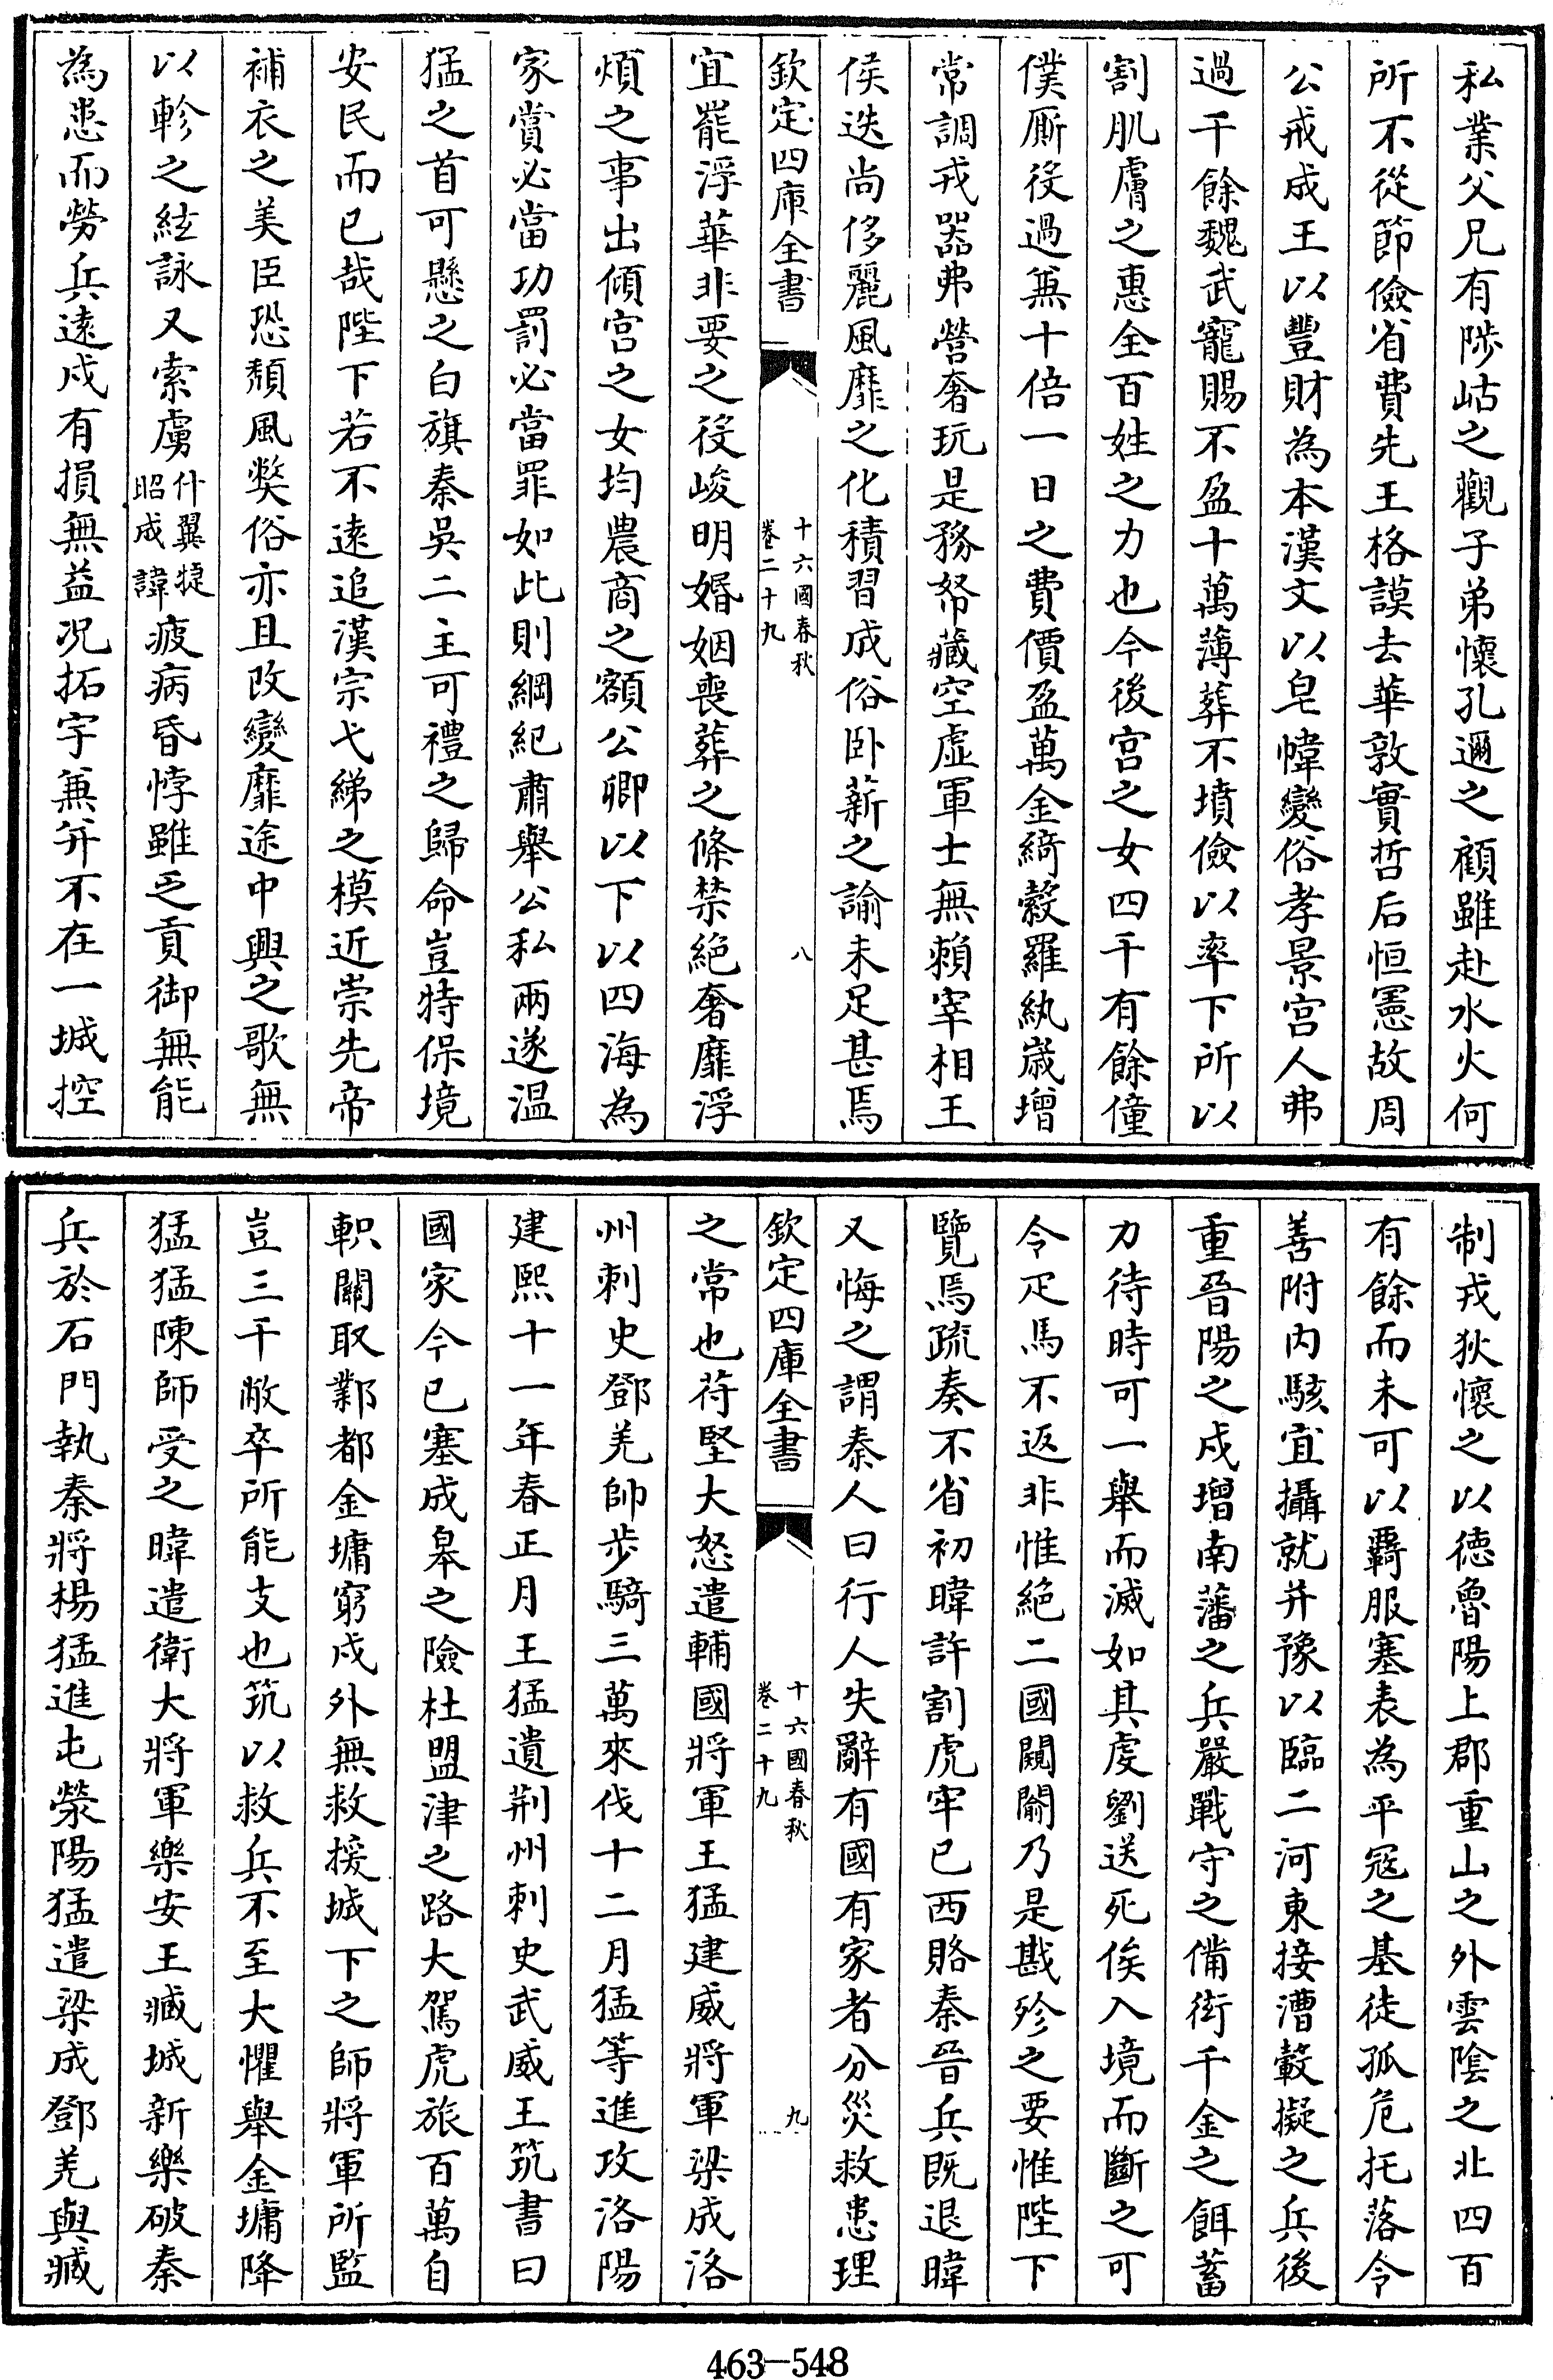 私業父兄有陟岵之觀子弟懷孔邇之顧雖赴水火何
所不從節儉省費先王格謨去華敦實哲后恒憲故周
公戒成王以豐財為本漢文以皂幃變俗孝景宫人弗
過千餘魏武寵賜不盈十萬薄葬不墳儉以率下所以
割肌膚之惠全百姓之力也今後宫之女四千有餘僮
僕厮役過兼十倍一日之費價盈萬金綺縠羅紈歲增
常調戎器弗營奢玩是務帑藏空虚軍士無賴宰相王
侯迭尚侈麗風靡之化積習成俗卧薪之諭未足甚焉
欽定四庫全書
十六國春秋
卷二十九
八
宜罷浮華非要之役峻明婚姻喪葬之條禁絶奢靡浮
煩之事出傾宫之女均農商之額公卿以下以四海為
家賞必當功罰必當罪如此則綱紀肅舉公私兩遂温
猛之首可懸之白旗秦吳二主可禮之歸命豈特保境
安民而已哉陛下若不遠追漢宗弋綈之模近崇先帝
補衣之美臣恐頽風弊俗亦且改變靡途中興之歌無
以軫之絃詠又索虜什翼犍昭成諱疲病昏悖雖乏貢御無能
為患而勞兵遠戍有損無益况拓宇兼并不在一城控
制戎狄懷之以德魯陽上郡重山之外雲陰之北四百
有餘而未可以覊服塞表為平寇之基徒孤危托落令
善附内駭宜攝就并豫以臨二河東接漕轂擬之兵後
重晉陽之戍增南藩之兵嚴戰守之備衒千金之餌蓄
力待時可一舉而滅如其虔劉送死俟入境而斷之可
令疋馬不返非惟絶二國闚闞乃是戡殄之要惟陛下
覽焉疏奏不省初暐許割虎牢已西賂秦晉兵既退暐
又悔之謂秦人曰行人失辭有國有家者分災救患理
欽定四庫全書
十六國春秋
卷二十九
九
之常也苻堅大怒遣輔國將軍王猛建威將軍梁成洛
州刺史鄧羌帥步騎三萬來伐十二月猛等進攻洛陽
建熙十一年春正月王猛遺荆州刺史武威王筑書曰
國家今已塞成皋之險杜盟津之路大駕虎旅百萬自
軹關取鄴都金墉窮戍外無救援城下之師將軍所監
豈三千敝卒所能支也筑以救兵不至大懼舉金墉降
猛猛陳師受之暐遣衛大將軍樂安王臧城新樂破秦
兵於石門執秦將楊猛進屯滎陽猛遣梁成鄧羌與臧
463-548